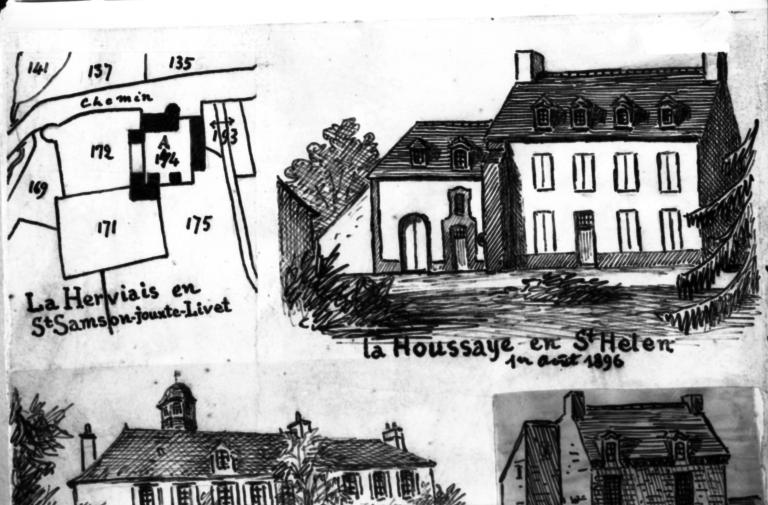 141
137
135
Chemin
193
172
A
174
169
171
175
La Herviais en
St Samson-jouxte-Livet
la Houssaye en St Helen
1er Août 1896